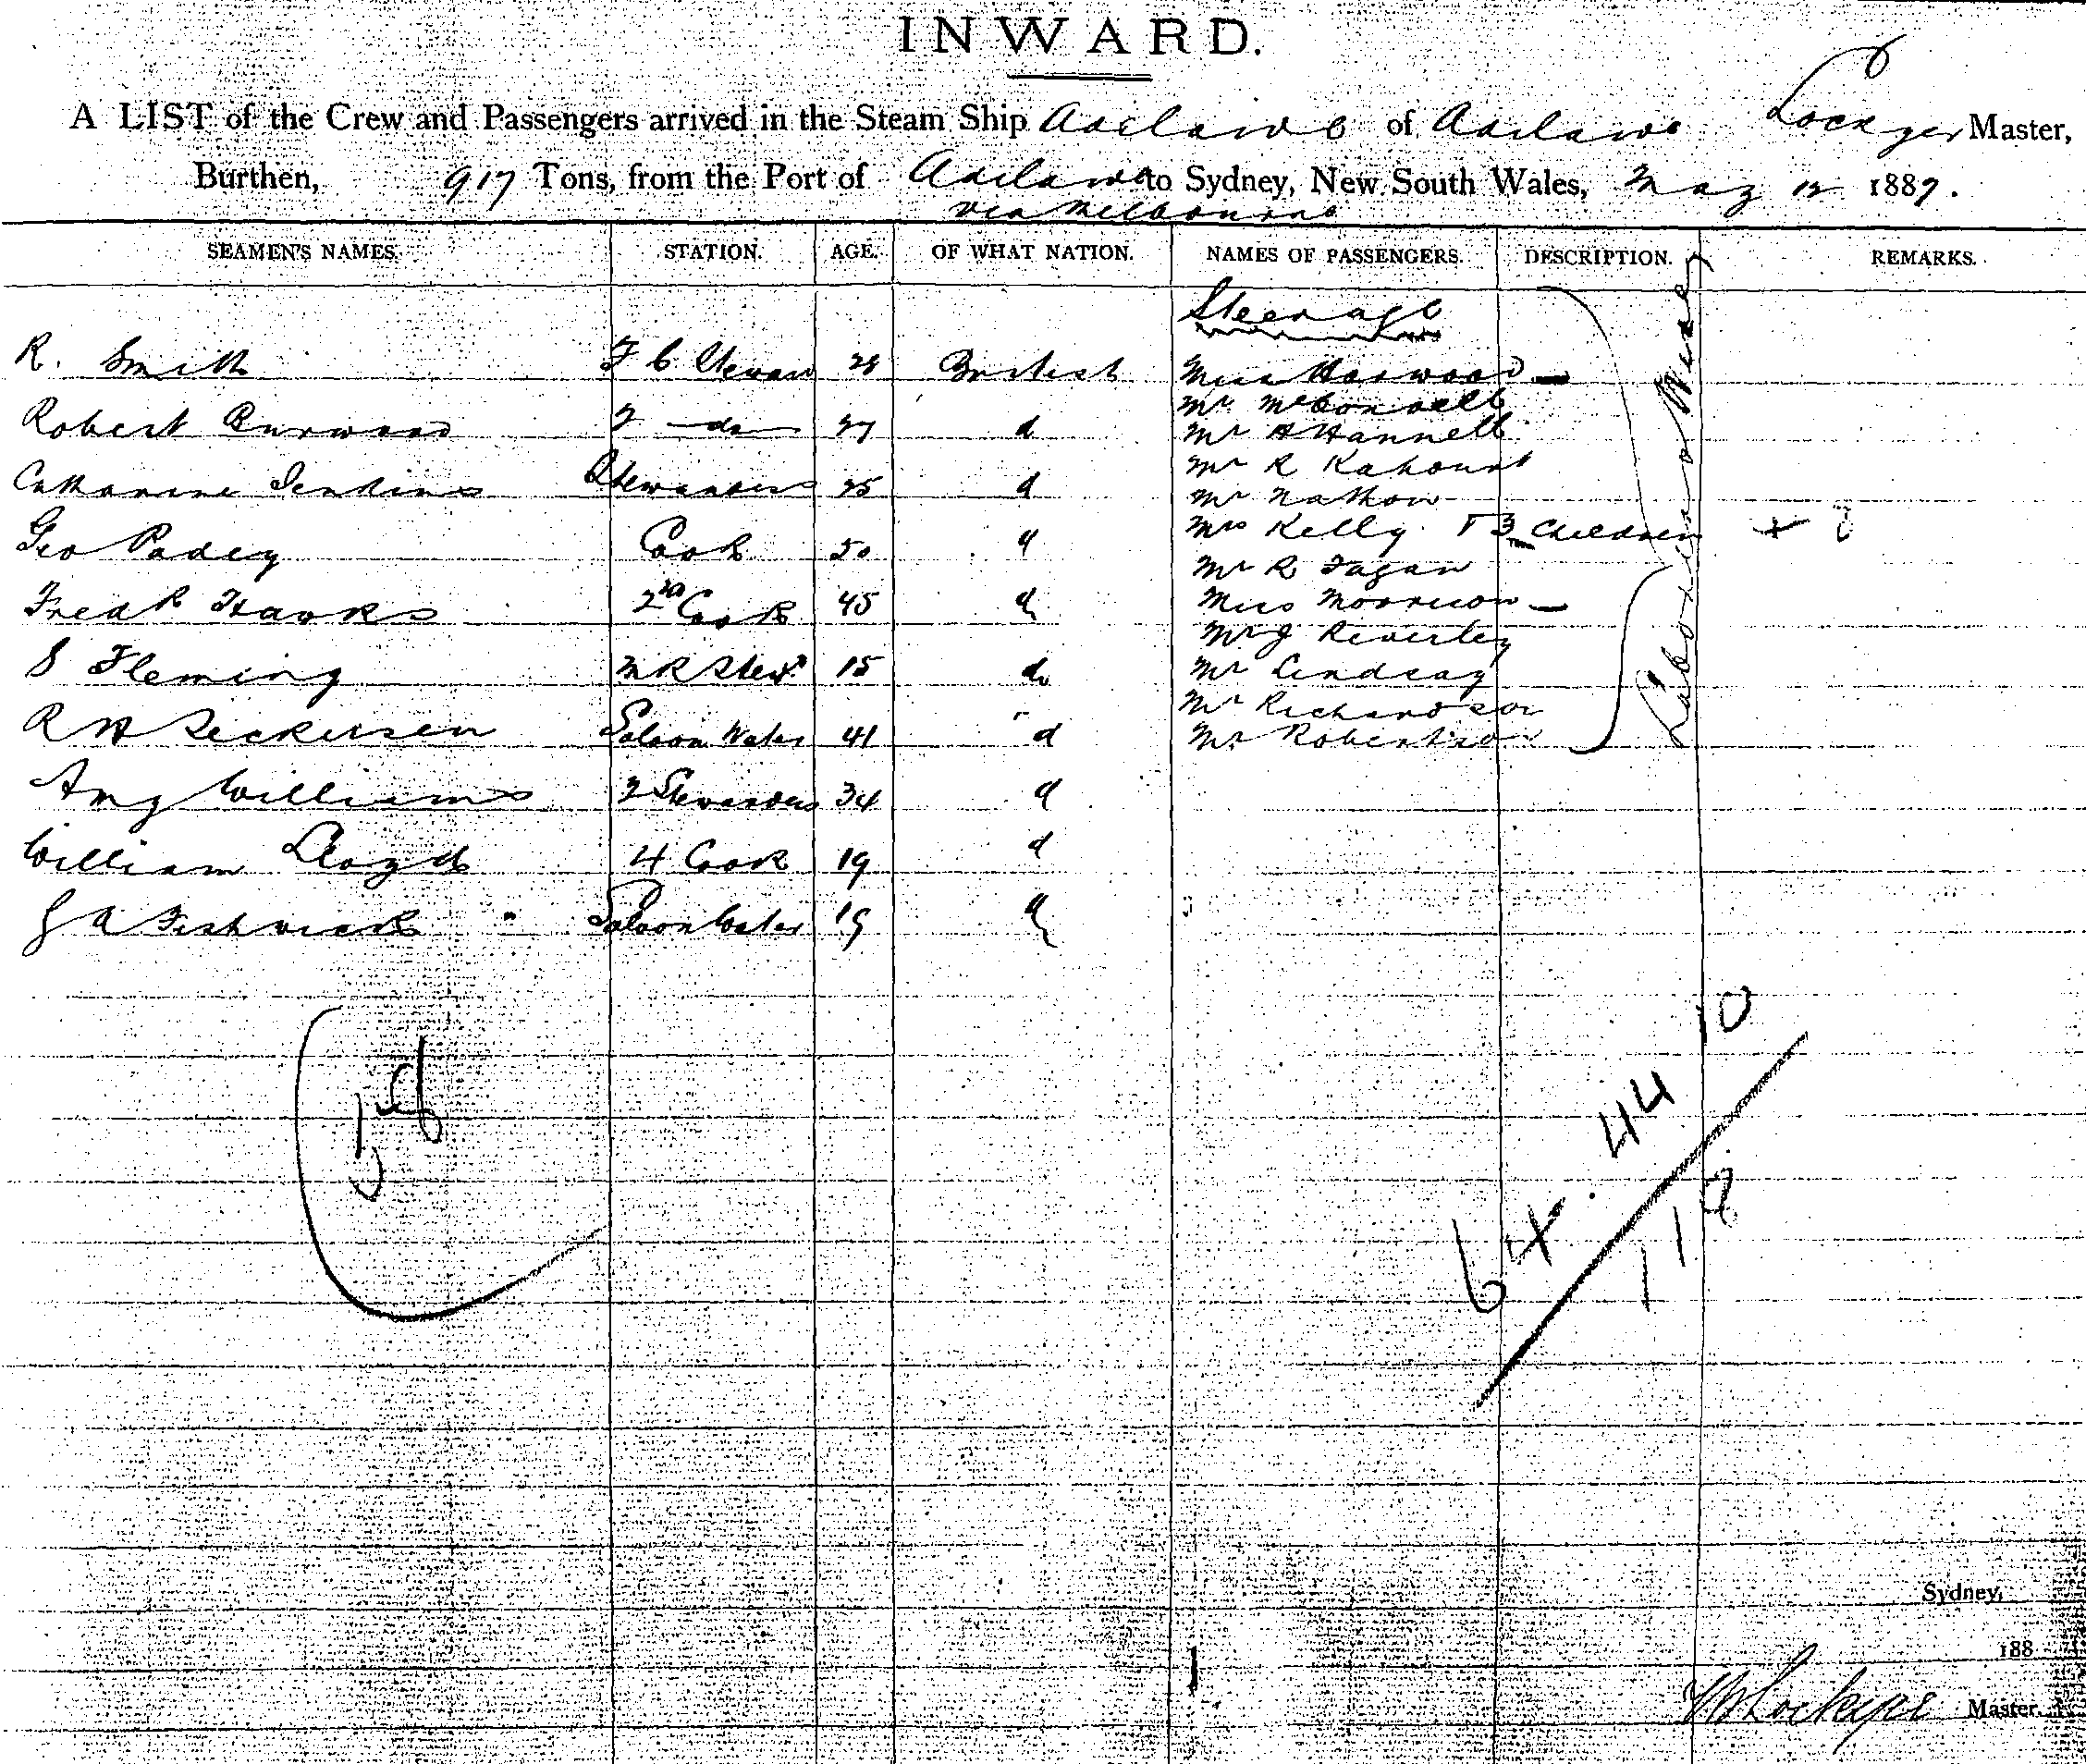 INWARD.
A LIST of the Crew and Passengers arrived in the Steam Ship Adelaide of Adelaide Lockyer Master,
Burthen, 917 Tons, from the Port of Adelaide to Sydney, New South Wales, May 12 1887.
via Melbourne
SEAMEN'S NAMES. STATION. AGE. OF WHAT NATION. NAMES OF PASSENGERS. DESCRIPTION. REMARKS.
Steerage
R. Smith F C Steward 28 British Miss Harwood
Mr McConnell
Robert Burwood 2 do 27 d Mr A Hannell
Mr R Kahount
Catharine Jenkins Stewardess 25 d Mr Nathan
Mrs Kelly 3 Children
Geo Padey Cook 50 d
Mr R Fagan
Fredk Hawks 2nd Cook 45 d Miss Morrison
Mr J Reverley
S Fleming M R Stewd 15 do Mr Lindsay
Mr Richardson
R H Deckersen Saloon Waiter 41 d Mr Robertson
Amy Williams 2 Stewardess 34 d
William Lloyd 4 Cook 19 d
G A Fishwick Saloon Waiter 19 d
10
44
64.
118
Sydney,
188
Lockyer Master.